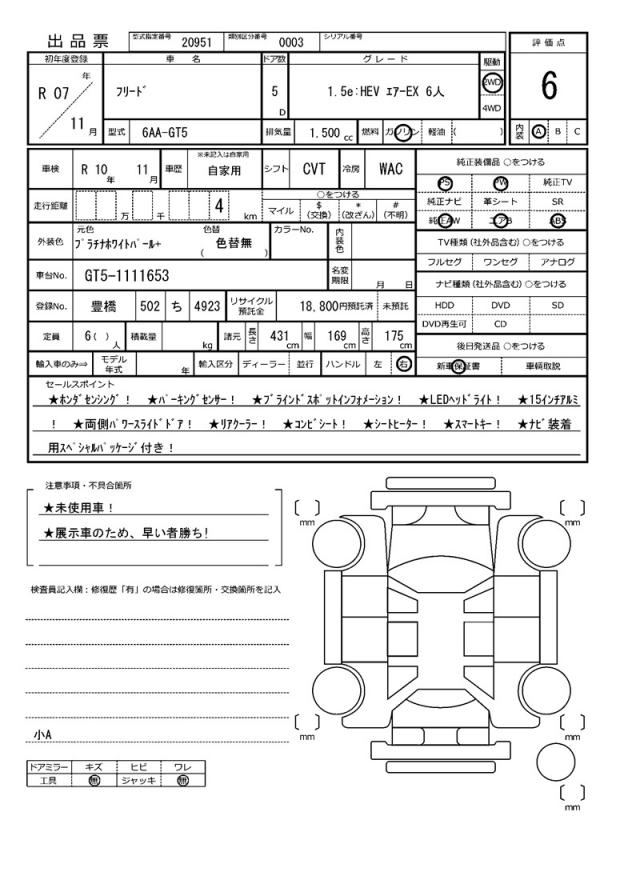 出品票
型式指定番号 20951 類別区分番号 0003 シリアル番号
評価点
6
初年度登録 車名 ドア数 グレード 駆動
R 07 年 11 月
ﾌﾘｰﾄﾞ
5 D
1.5e:HEV ｴｱｰEX 6人
2WD
4WD
型式 6AA-GT5 排気量 1.500 cc 燃料 ガソリン 軽油 ( )
内装 A B C
車検 R 10 年 11 月 車歴 ※未記入は自家用 自家用 シフト CVT 冷房 WAC
走行距離 万 千 4 km
○をつける
マイル $(交換) *(改ざん) #(不明)
外装色 元色 ﾌﾟﾗﾁﾅﾎﾜｲﾄﾊﾟｰﾙ+ 色替 ( 色替無 ) カラーNo. 内装色
車台No. GT5-1111653 名変期限 月 日
登録No. 豊橋 502 ち 4923 リサイクル預託金 18,800円預託済 未預託
定員 6( ) 人 積載量 kg 諸元 長さ 431 cm 幅 169 cm 高さ 175 cm
輸入車のみ⇨ モデル年式 年 輸入区分 ディーラー 並行 ハンドル 左 右
純正装備品 ○をつける
PS PW 純正TV
純正ナビ 革シート SR
純正AW エアB ABS
TV種類 (社外品含む) ○をつける
フルセグ ワンセグ アナログ
ナビ種類 (社外品含む) ○をつける
HDD DVD SD
DVD再生可 CD
後日発送品 ○をつける
新車保証書 車輌取説
セールスポイント
★ﾎﾝﾀﾞｾﾝｼﾝｸﾞ！ ★ﾊﾟｰｷﾝｸﾞｾﾝｻｰ！ ★ﾌﾞﾗｲﾝﾄﾞｽﾎﾟｯﾄｲﾝﾌｫﾒｰｼｮﾝ！ ★LEDﾍｯﾄﾞﾗｲﾄ！ ★15ｲﾝﾁｱﾙﾐ
！ ★両側ﾊﾟﾜｰｽﾗｲﾄﾞﾄﾞｱ！ ★ﾘｱｸｰﾗｰ！ ★ｺﾝﾋﾞｼｰﾄ！ ★ｼｰﾄﾋｰﾀｰ！ ★ｽﾏｰﾄｷｰ！ ★ﾅﾋﾞ装着
用ｽﾍﾟｼｬﾙﾊﾟｯｹｰｼﾞ付き！
注意事項・不具合箇所
★未使用車！
★展示車のため、早い者勝ち！
検査員記入欄：修復歴「有」の場合は修復箇所・交換箇所を記入
小A
ドアミラー キズ ヒビ ワレ
工具 無 ジャッキ 無
〔 〕 mm
〔 〕 mm
〔 〕 mm
〔 〕 mm
〔 〕 mm